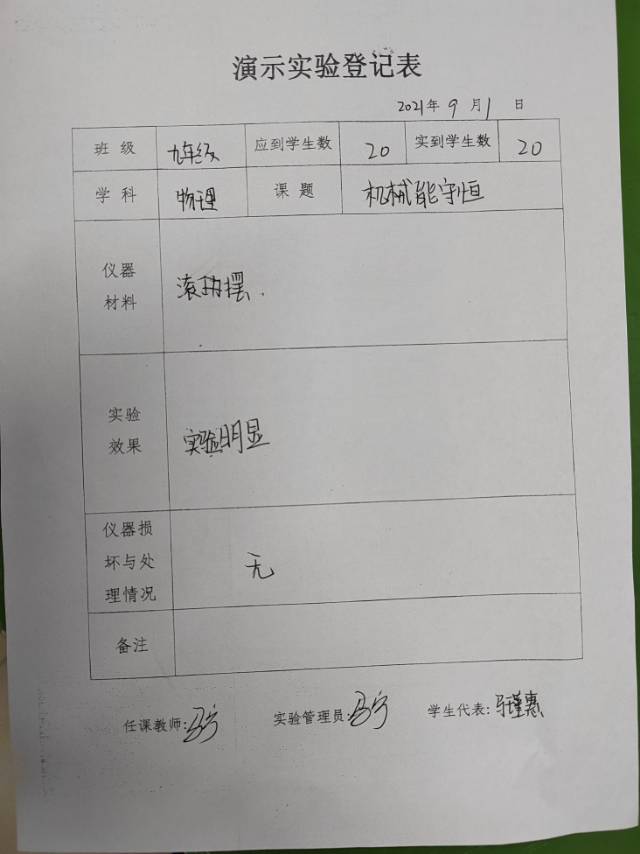 演示实验登记表
2021年 9 月 1 日
班 级 九年级 应到学生数 20 实到学生数 20
学 科 物理 课 题 机械能守恒
仪器
材料
滚摆.
实验
效果
实验明显
仪器损
坏与处
理情况
无
备注
任课教师: 实验管理员: 学生代表: 马瑾惠